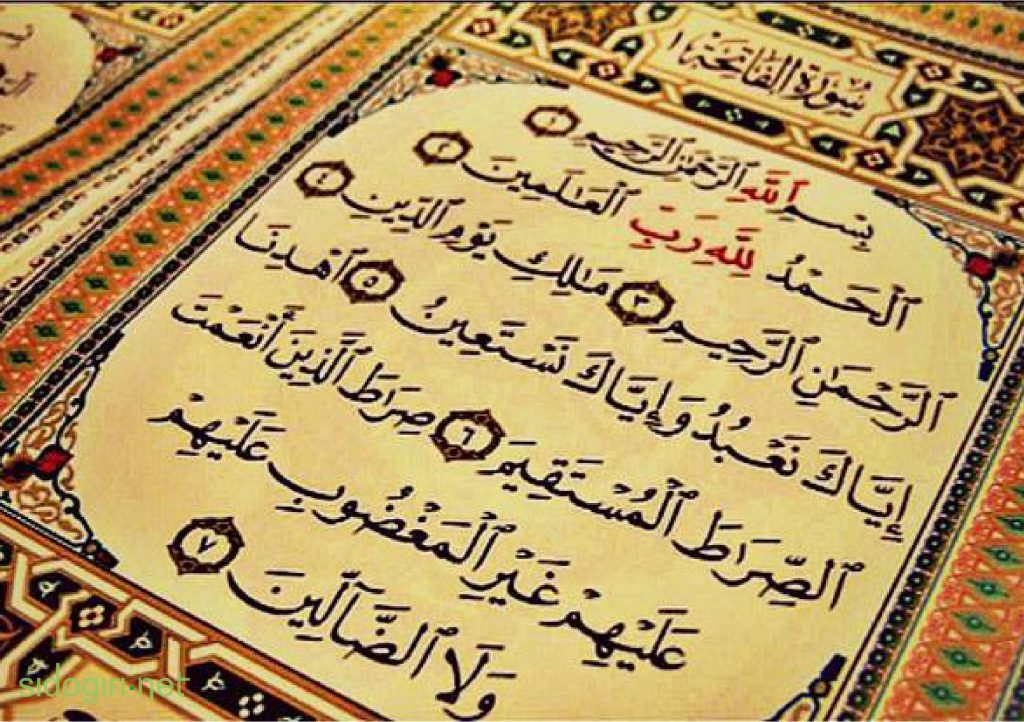 سُورَةُ الفَاتِحَةِ ١
بِسْمِ ٱللَّهِ ٱلرَّحْمَٰنِ ٱلرَّحِيمِ ١
ٱلْحَمْدُ لِلَّهِ رَبِّ ٱلْعَٰلَمِينَ ٢
ٱلرَّحْمَٰنِ ٱلرَّحِيمِ ٣ مَٰلِكِ يَوْمِ ٱلدِّينِ ٤
إِيَّاكَ نَعْبُدُ وَإِيَّاكَ نَسْتَعِينُ ٥ ٱهْدِنَا
ٱلصِّرَٰطَ ٱلْمُسْتَقِيمَ ٦ صِرَٰطَ ٱلَّذِينَ أَنْعَمْتَ
عَلَيْهِمْ غَيْرِ ٱلْمَغْضُوبِ عَلَيْهِمْ
وَلَا ٱلضَّآلِّينَ ٧
sidogiri-net